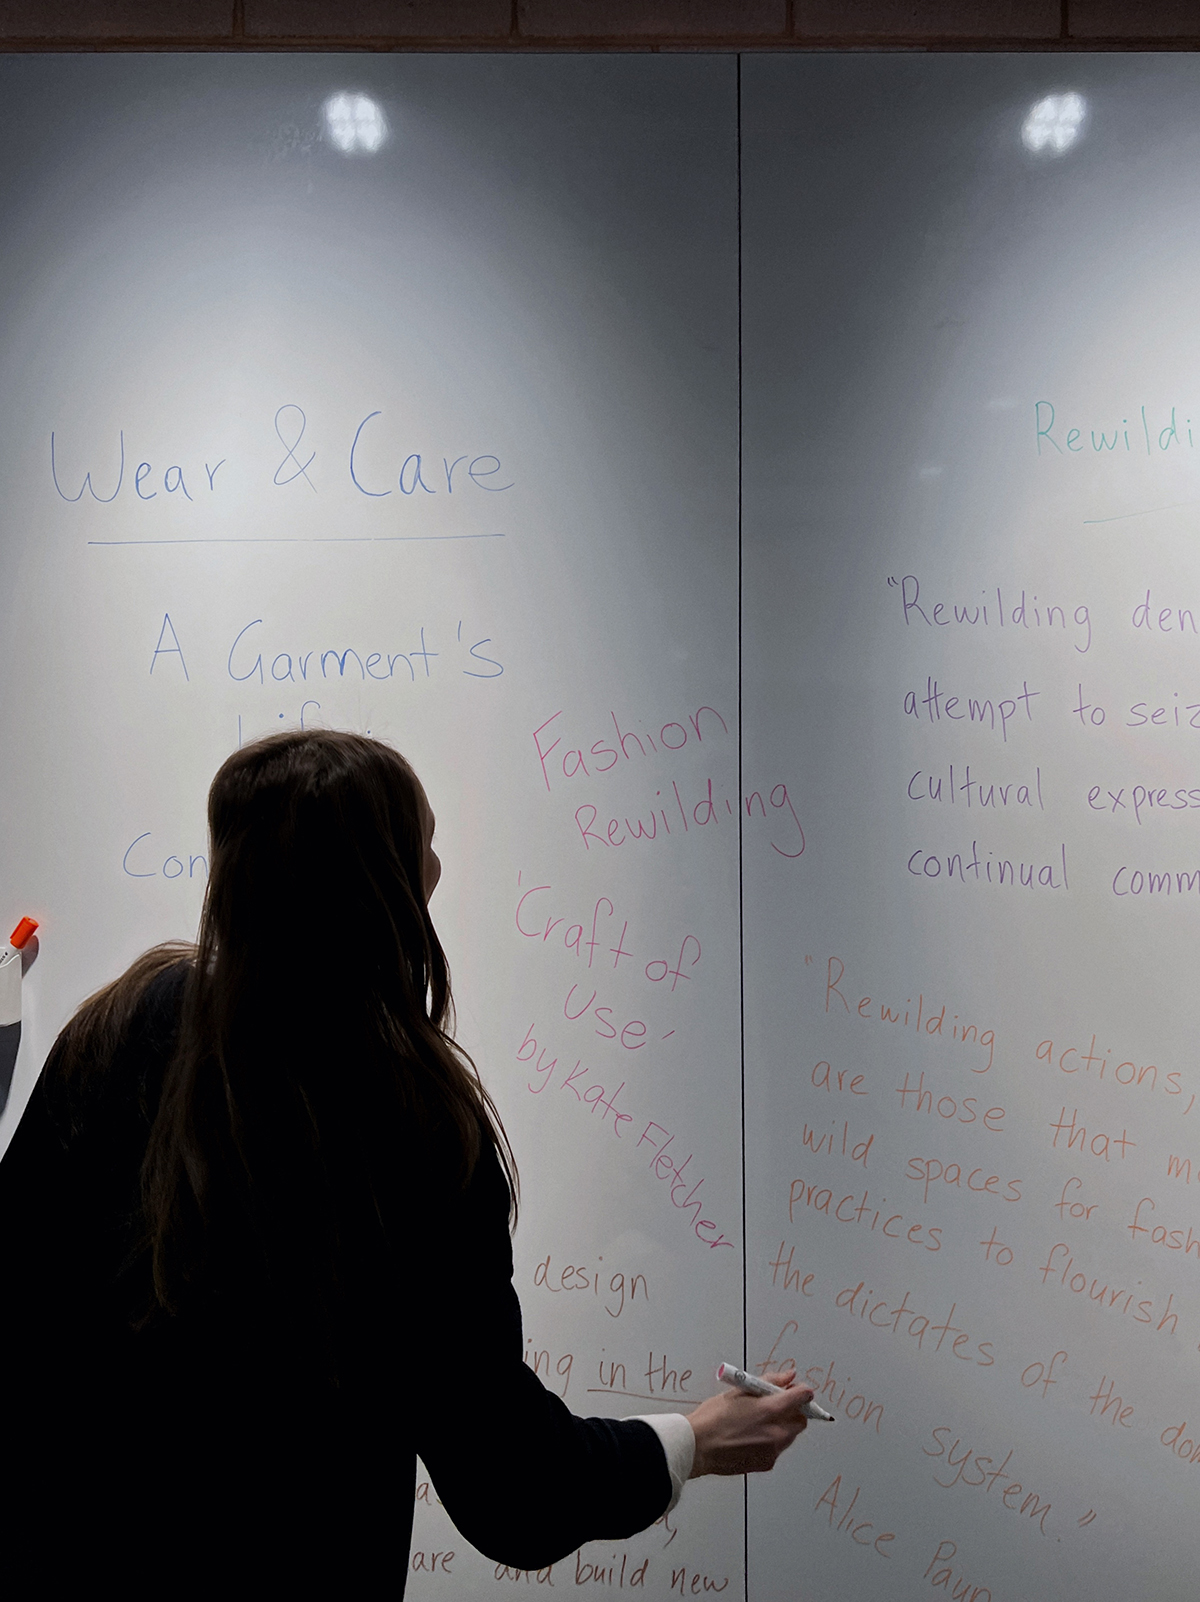 Wear & Care
A Garment's
Con
Fashion
Rewilding
'Craft of
Use'
by Kate Fletcher
design
ing in the
are and build new
Rewildi
"Rewilding den
attempt to seiz
cultural express
continual comm
"Rewilding actions,
are those that m
wild spaces for fash
practices to flourish
the dictates of the dom
fashion system."
Alice Payn